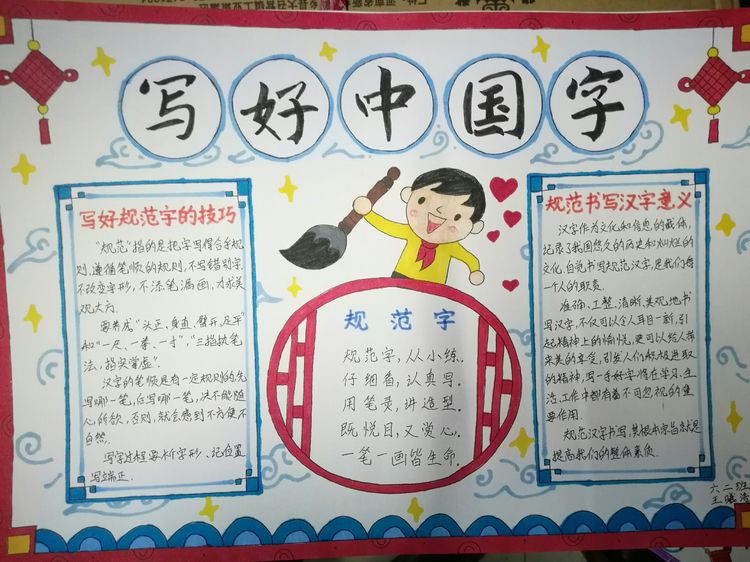 写好中国字
写好规范字的技巧
"规范"指的是把字写得合乎规
则,遵循笔顺的规则,不写错别字,
不改变字形,不添笔漏画,力求美
观大方.
要养成"头正,身直,臂开,足平"
和"一尺,一拳,一寸","三指执笔
法,指实掌虚".
汉字的笔顺是有一定规则的先
写哪一笔,后写哪一笔,决不能随
心所欲,否则,就会感到不方便不
自然.
写字过程要析字形、记位置
写端正.
规范字
规范字,从小练.
仔细看,认真写.
用笔灵,讲造型.
既悦目,又赏心.
一笔一画皆生命.
规范书写汉字意义
汉字作为文化和信息的载体,
记录了我国悠久的历史和灿烂的
文化,自觉书写规范汉字,是我们每
一个人的职责.
准确、工整、清晰、美观地书
写汉字,不仅可以令人耳目一新,引
起精神上的愉悦,更可以给人带
来美的享受,引发人们积极进取
的精神,写一手好字将在学习、生
活、工作中都有着不可忽视的重
要作用.
规范汉字书写,其根本宗旨就是
提高我们的整体素质.
六二班
王曦